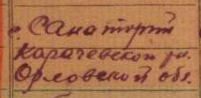 г. Санаторий
Карачевской ра.
Орловской обл.